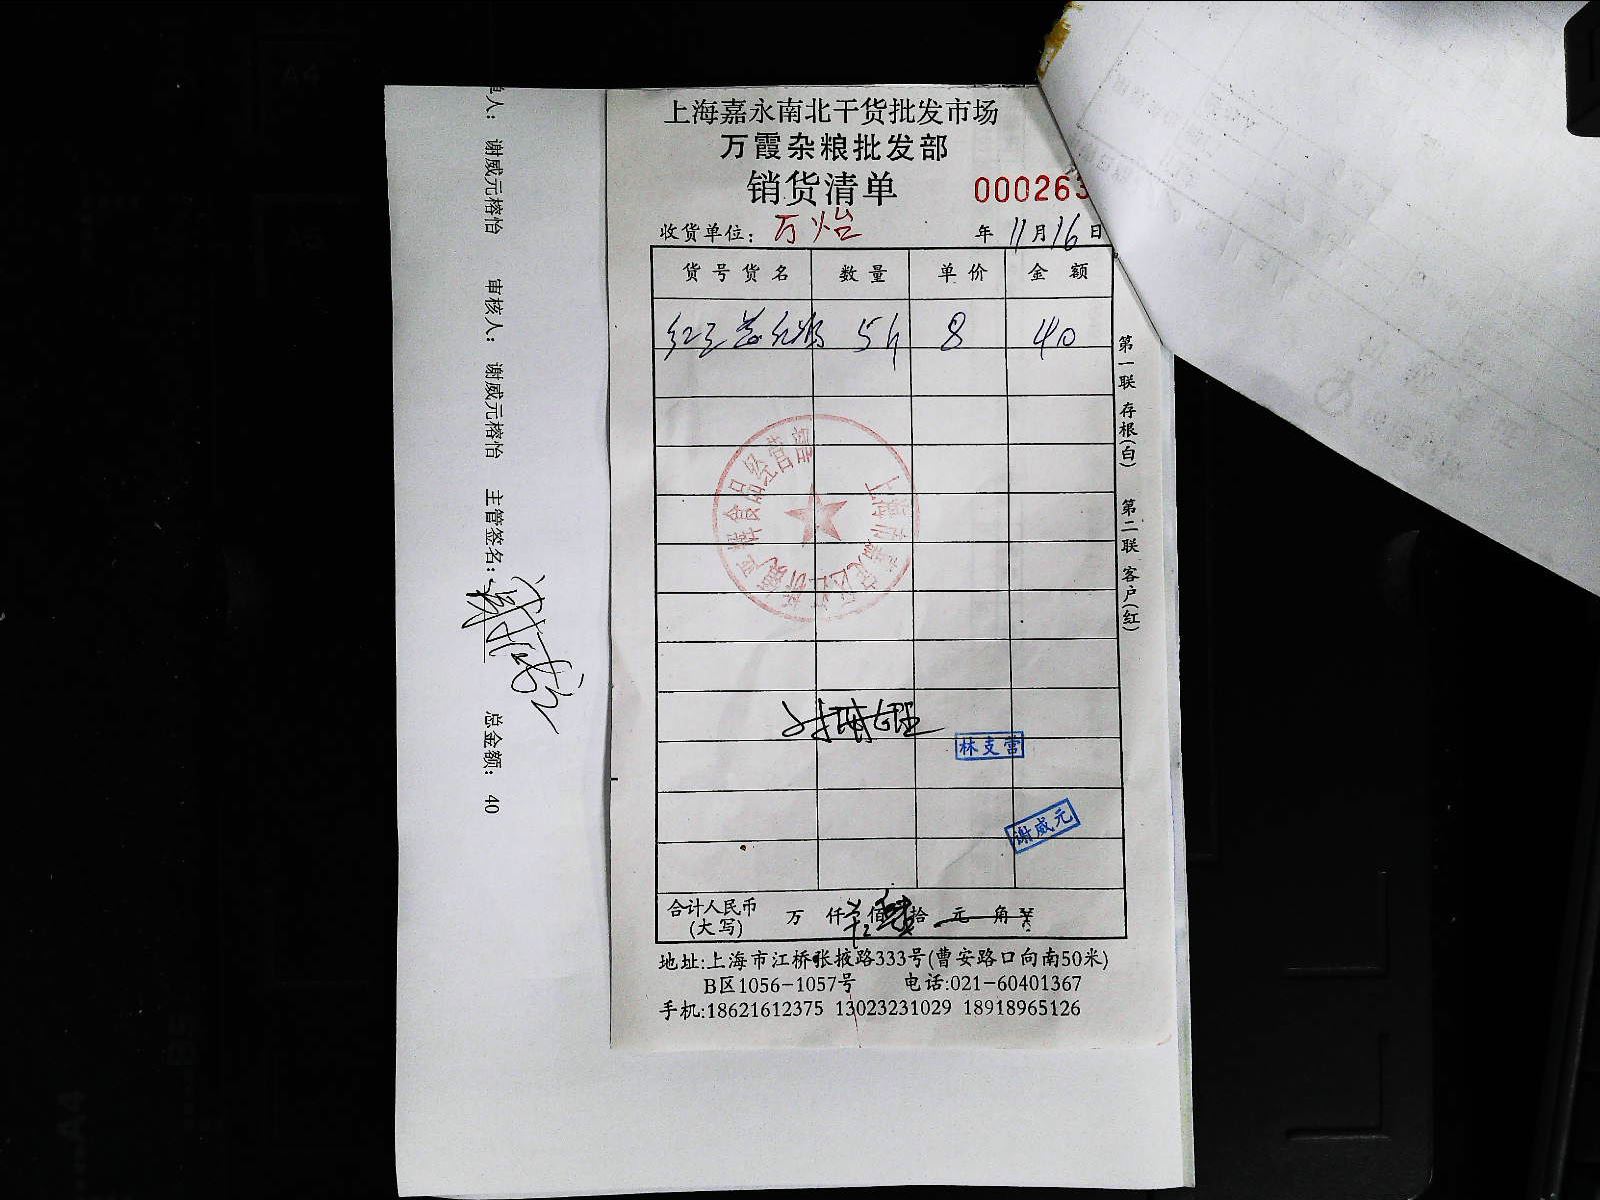 上海嘉永南北干货批发市场
万霞杂粮批发部
销货清单 000263
收货单位: 万怡 年 11月16日
货号货名 数量 单价 金额
5斤 8 40
林支营
谢威元
合计人民币 万 仟 佰 拾 元 角
(大写)
地址:上海市江桥张掖路333号(曹安路口向南50米)
B区1056-1057号 电话:021-60401367
手机:18621612375 13023231029 18918965126
第一联 存根(白) 第二联 客户(红)
人: 谢威元榕怡 审核人: 谢威元榕怡 主管签名: 总金额: 40